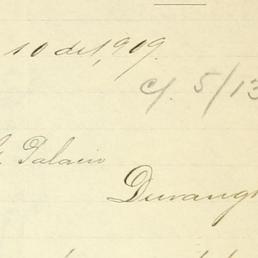 10 de 1,909.
c/. 5/13
Palacio
Durango